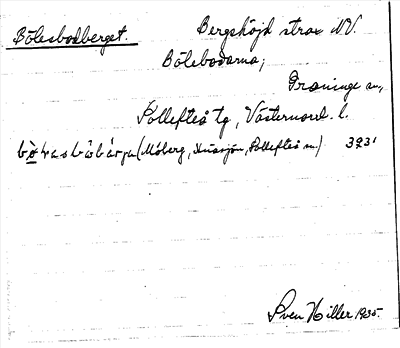 Bölesbodberget. Bergshöjd strax NV.
Bölebodarna;
Graninge sn,
Sollefteå tg, Västernorrl. l.
(Moberg, Krånge, Sollefteå sn.) 3931
Sven Hiller 1935.